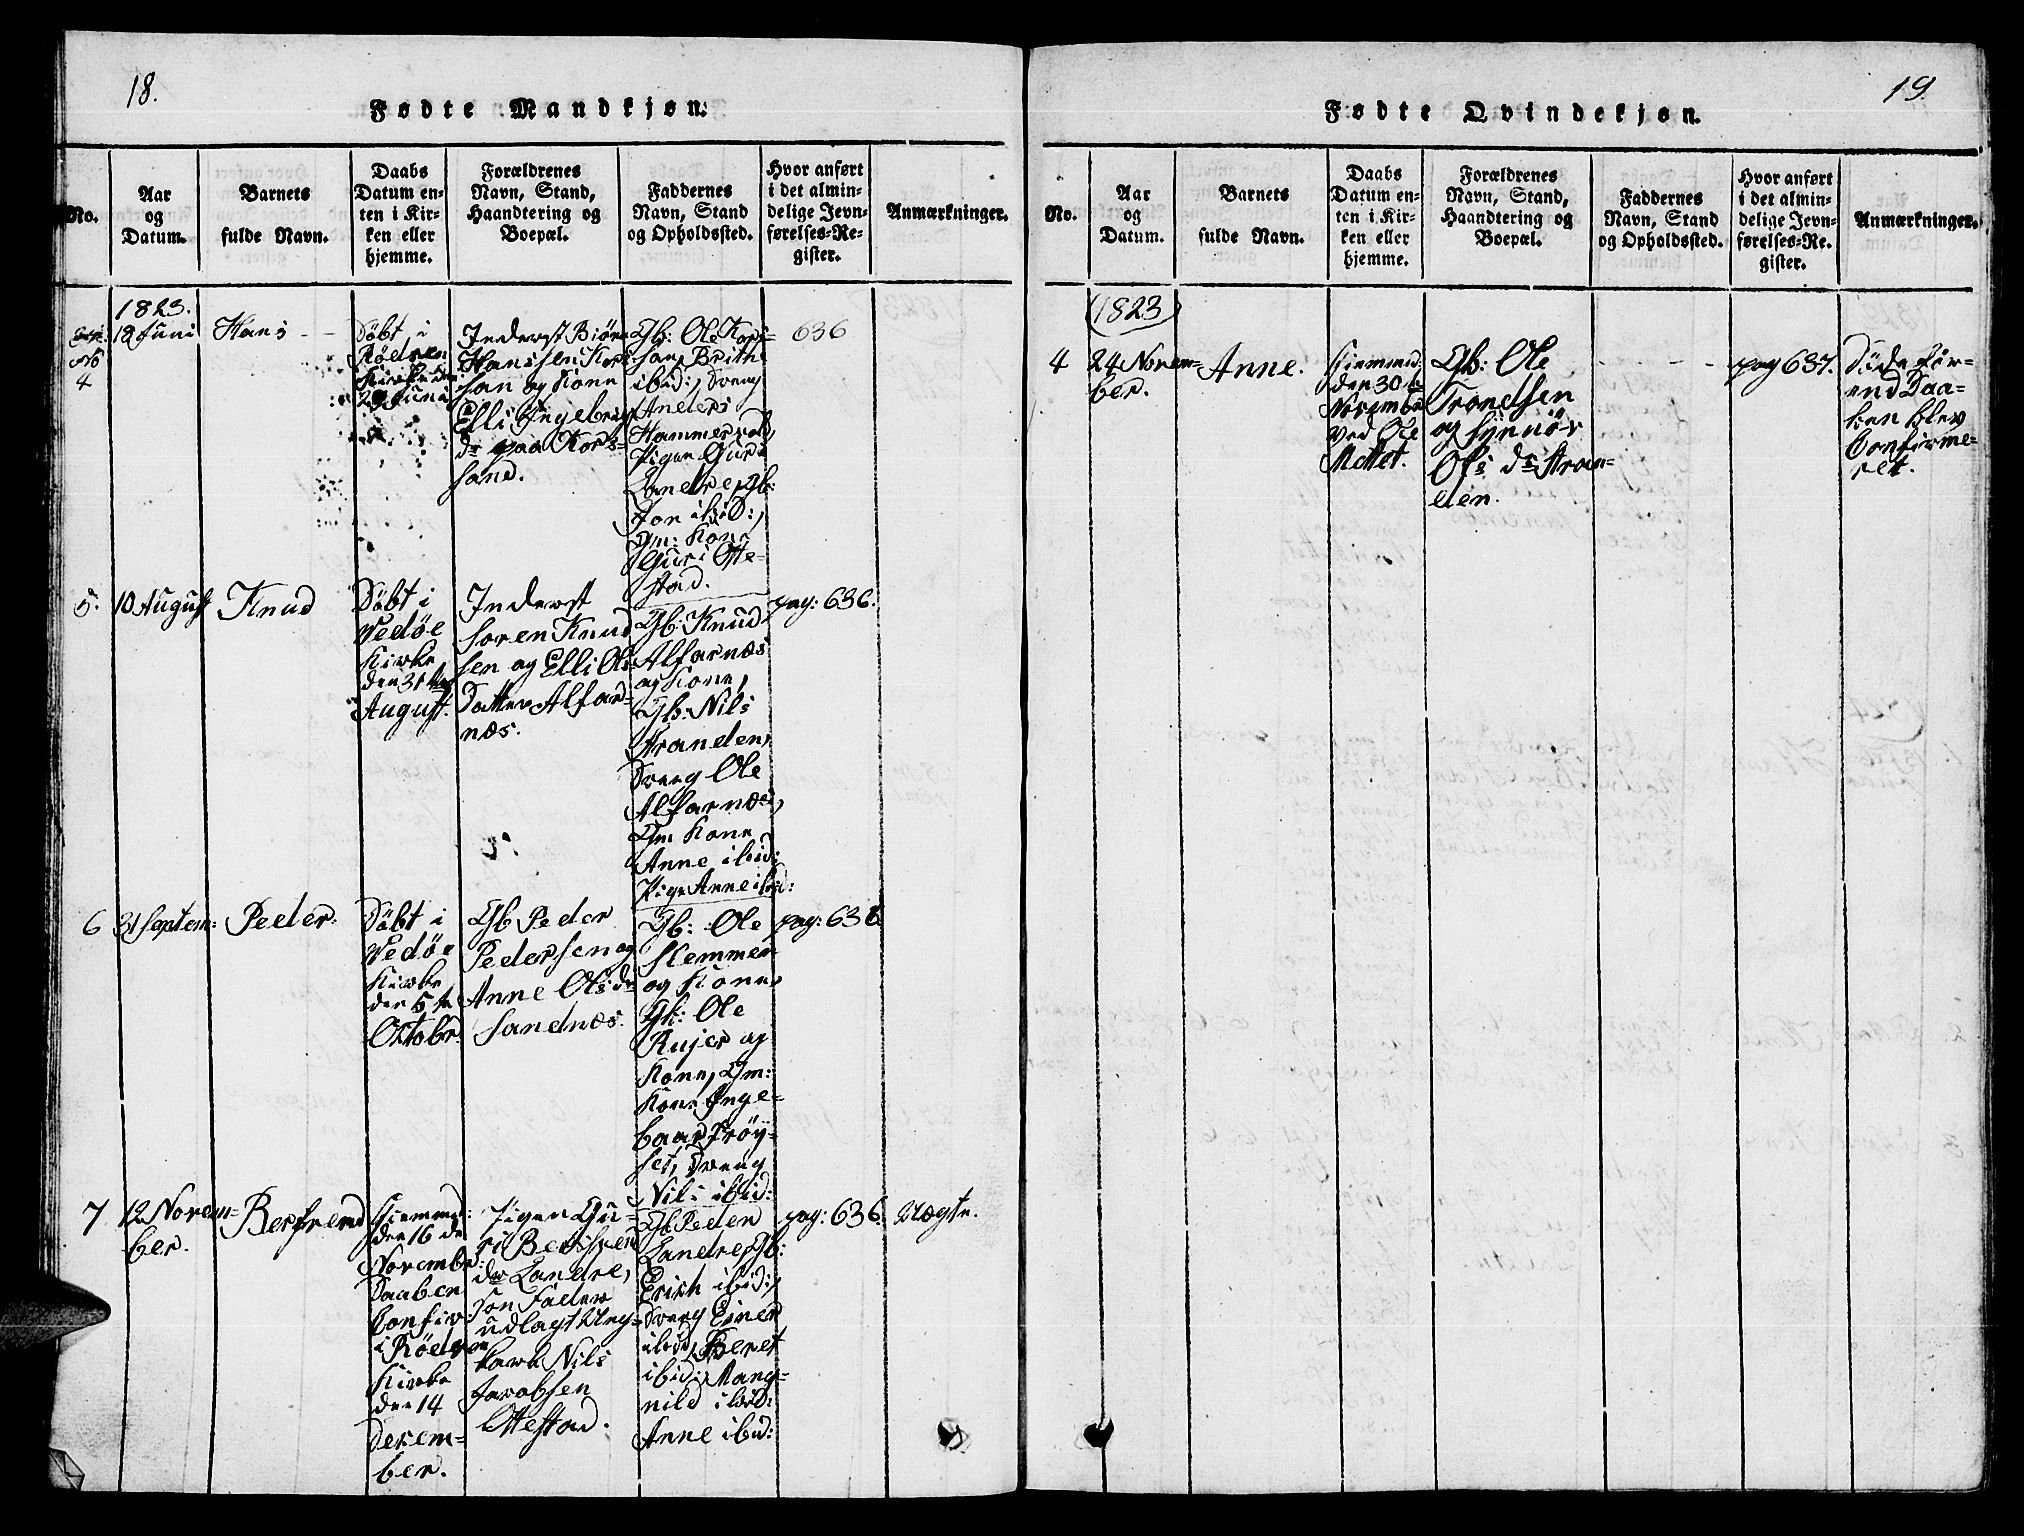 18.
Fødte Mandkjøn.
No.
Aar
og
Datum.
Barnets
fulde Navn.
Daabs
Datum en-
ten i Kir-
ken eller
hjemme.
Forældrenes
Navn, Stand,
Haandtering og
Boepæl.
Faddernes
Navn, Stand
og Opholdssted.
Hvor anført
i det almin-
delige Jevn-
førelses-Re-
gister.
Anmærkninger.
1823.
4
12 Juni
Hans
Døbt i
Røedven
Kirke den
29 Juni
Inderst Biørn
Hanssen Kors-
san og Kone
Elli Ingebrigt
dr paa Kors-
sand.
Gb: Ole Kors-
san, Brithe
ibid:, Dreng
Anders
Hammervold,
Pigen Guri
Landre, Gb:
Jon ibid:,
Gm: Kone
Guri Otte-
stad.
636
5.
10 August
Knud
Døbt i
Vedøe
Kirke
den 31te
August.
Inderst
Soren Knud
sen og Elli Ols
Datter Alfar-
næs.
Gb: Knud
Alfarnæs
og Kone,
Gb: Nils
Stranden,
Dreng Ole
Alfarnæs,
Gm Kone
Anne ibid:
Pige Anne ibid:
pag: 636.
6
31 Septem:
Peder.
Døbt i
Vedøe
Kirke
den 5te
Oktobr.
Gb Peder
Pedersen og
Anne Olsdr
Sandnæs.
Gb: Ole
Slemmen
og Kone,
Gb: Ole
Rujer og
Kone, Gm:
Kone Inge-
baar Frøy-
set, Dreng
Nils ibid:
pag: 636
7
12 Novem-
ber.
Bersvend
Hiemmed:
den 16 de
November:
Daaben
Confir:
i Røedven
Kirke
den 14
Decem-
ber.
Pigen Gu-
ri Bersven
dr Landre,
Son Fader
udlagt Ung-
karl Nils
Jacobsen
Ottestad.
Gb Peder
Landre, Gb:
Erich ibid:,
Dreng Einer
ibid, Beret
ibid:, Mang-
nild ibid:
Anne ibid:
pag: 636.
Uægte.
19.
Fødte Qvindekjøn.
No.
Aar
og
Datum.
Barnets
fulde Navn.
Daabs
Datum en-
ten i Kir-
ken eller
hjemme.
Forældrenes
Navn, Stand,
Haandtering og
Boepæl.
Faddernes
Navn, Stand
og Opholdssted.
Hvor anført
i det almin-
delige Jevn-
førelses-Re-
gister.
Anmærkninger.
1823
4
24 Novem-
ber.
Anne.
Hiemmed:
den 30te
November
ved Ole
Mittet.
Gb: Ole
Trondsen
og Synnøv
Ols dr Stran-
den.
pag 637.
Døde før-
end Daa-
ben blev
Confirme-
ret.